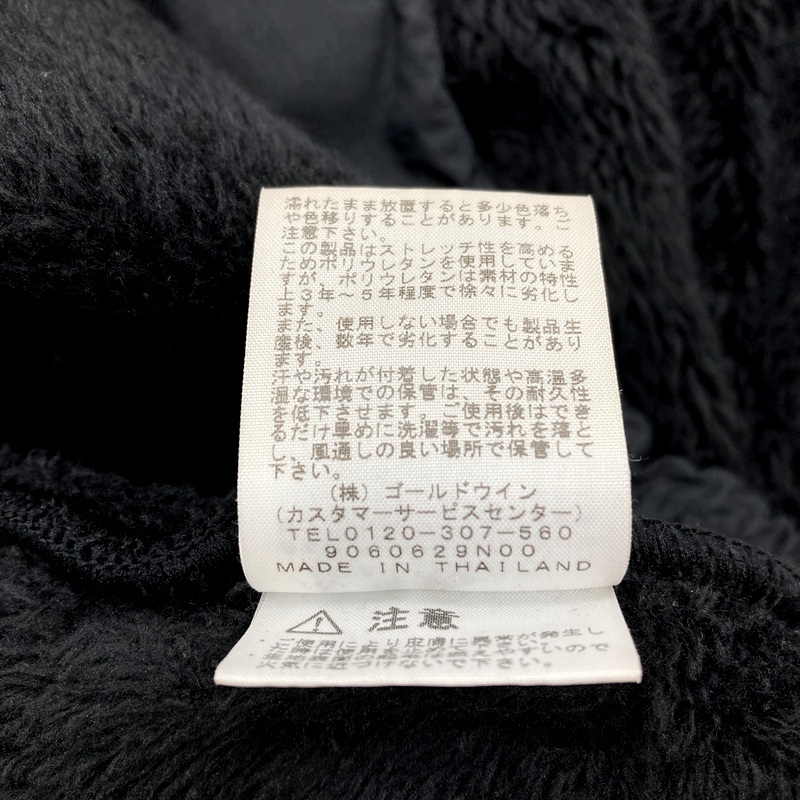 濡れたまま放置すると多少色落ちご
や色移りすることがあります。
注意下さい。
この製品はストレッチ性を高める
ためポリウレタンを使用していま
すが、ポリウレタンは素材の特性
上3年～5年程度で徐々に劣化し
ます。
また、使用しない場合でも製品生
産後、数年で劣化することがあり
ます。
汗や汚れが付着した状態や高温多
湿な環境での保管は、その耐久性
を低下させます。ご使用後はでき
るだけ早めに洗濯等で汚れを落と
し、風通しの良い場所で保管して
下さい。
(株) ゴールドウイン
(カスタマーサービスセンター)
TEL0120-307-560
9060629N00
MADE IN THAILAND
注意
ご使用により皮膚に異常が発生し
た時は使用を止め
火気に近づけないで下さい。